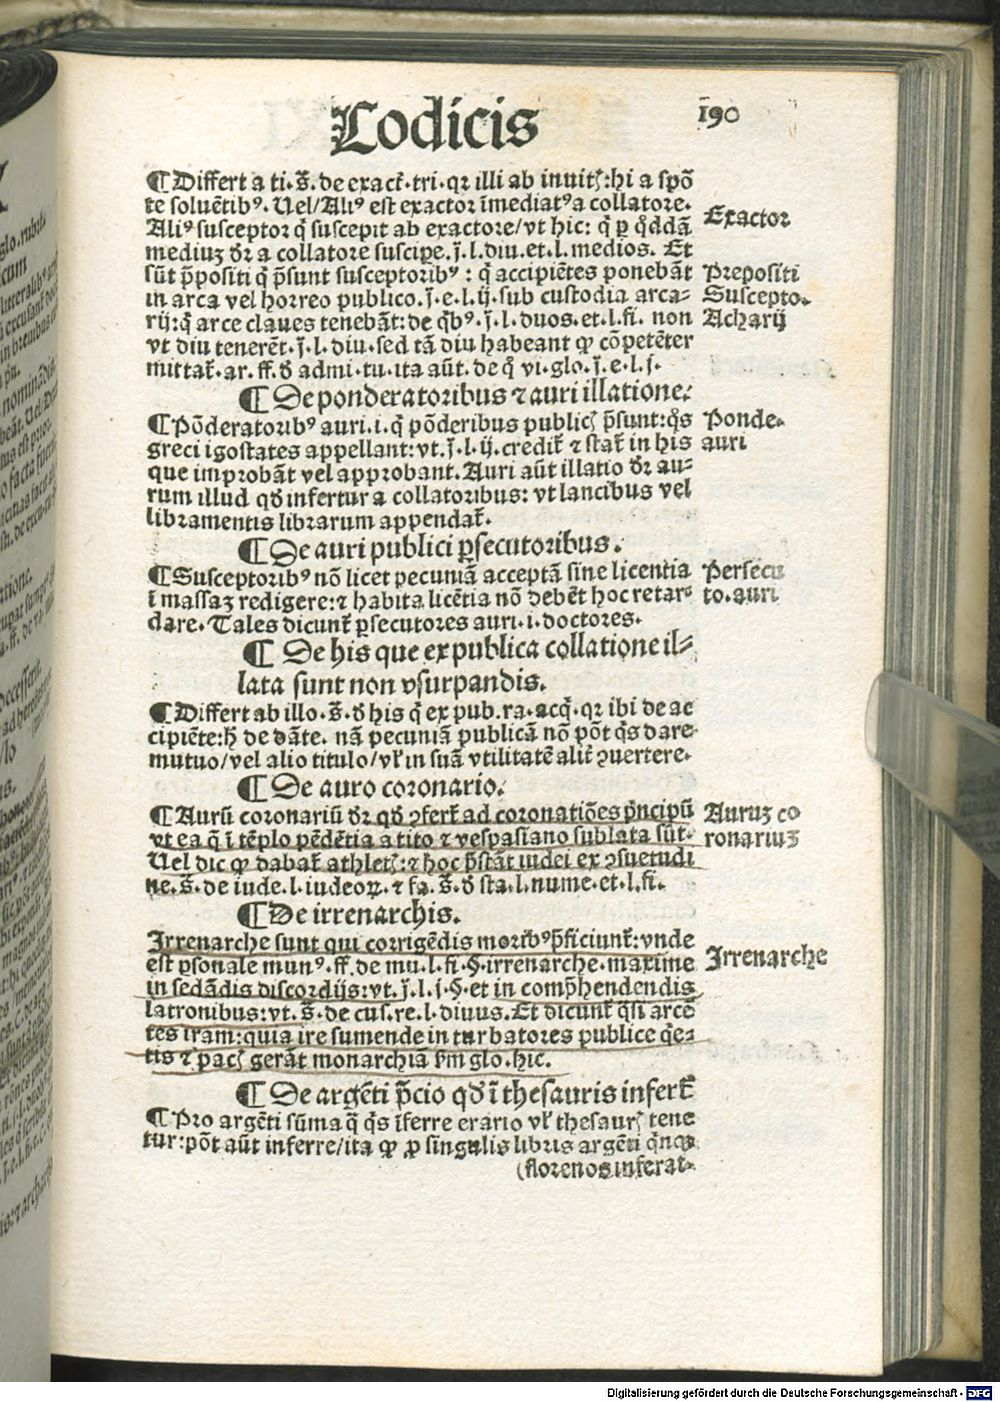 Codicis
190
¶Differt a ti.s̄.de exact̄.tri.qꝛ illi ab inuitꝭ:hi a spō
te soluētibꝰ. Uel/Aliꝰ est exactor īmediatꝰ a collatore.
Aliꝰ susceptor q̄ suscepit ab exactore/vt hic: q̄ ꝑ q̄ddā
mediuꝫ dꝛ a collatore suscipe.j̄.l.diu.et.l.medios. Et
sūt p̄positi q̄ p̄sunt susceptoribꝰ : q̄ accipiētes ponebāt
in arca vel horreo publico.j̄.e.l.ij.sub custodia arca-
rij:q̄ arce claues tenebāt:de q̄bꝰ.j̄.l.duos.et.l.fi. non
vt diu tenerēt.j̄.l.diu.sed tā diu habeant ꝙ cōpetēter
mittat̄.ar.ff.ð admi.tu.ita aūt.de q̄ vi.glo.j̄.e.l.j.
Exactor
Prepositi
Suscepto.
Acharij
¶ De ponderatoribus ⁊ auri illatione.
¶Pōderatoribꝰ auri.i.q̄ pōderibus publicꝭ p̄sunt:q̄s
greci igostates appellant:vt.j̄.l.ij.credit̄ ⁊ stat̄ in his
que improbāt vel approbant. Auri aūt illatio dꝛ au-
rum illud qð infertur a collatoribus: vt lancibus vel
libramentis librarum appendat̄.
Ponde.
auri
¶ De auri publici ꝑsecutoribus.
¶Susceptoribꝰ nō licet pecuniā acceptā sine licentia
ī massaꝫ redigere:⁊ habita licētia nō debēt hoc retar-
dare. Tales dicunt̄ ꝑsecutores auri.i.doctores.
Persecu
to.auri
¶ De his que ex publica collatione il-
lata sunt non vsurpandis.
¶Differt ab illo.s̄.ð his q̄ ex pub.ra.acq̄.qꝛ ibi de ac
cipiēte:h̄ de dāte. nā pecuniā publicā nō pōt q̄s dare
mutuo/vel alio titulo/vl̄ in suā vtilitatē alit̄ ꝯuertere.
¶ De auro coronario.
¶Aurū coronariū dꝛ qð ꝯfert̄ ad coronatiōes p̄ncipū
vt ea q̄ ī tēplo pēdētia a tito ⁊ vespasiano sublata sūt.
Uel dic ꝙ dabat̄ athletꝭ:⁊ hoc p̄stāt iudei ex ꝯsuetudi
ne.s̄.de iude.l.iudeoꝝ.⁊ fa.s̄.ð sta.l.nume.et.l.fi.
Auruꝫ co
ronariuꝫ
¶ De irrenarchis.
Irrenarche sunt qui corrigēdis moribꝰ p̄ficiunt̄:vnde
est ꝑsonale munꝰ.ff.de mu.l.fi.§.irrenarche.maxime
in sedādis discordijs:vt.j̄.l.j.§.et in comp̄hendendis
latronibus:vt.s̄.de cus.re.l.diuus.Et dicunt̄ q̄si arcē
tes iram:quia ire sumende in turbatores publice q̄e-
tis ⁊ pacꝭ gerāt monarchiā ẜm glo.hic.
Irrenarche
¶ De argēti p̄cio qð ī thesauris infert̄
¶Pro argēti sūma q̄ q̄s īferre erario vl̄ thesaurꝭ tene
tur:pōt aūt inferre/ita ꝙ ꝓ singulis libris argēti q̄nqꝫ
(florenos inferat.
Digitalisierung gefördert durch die Deutsche Forschungsgemeinschaft - DFG